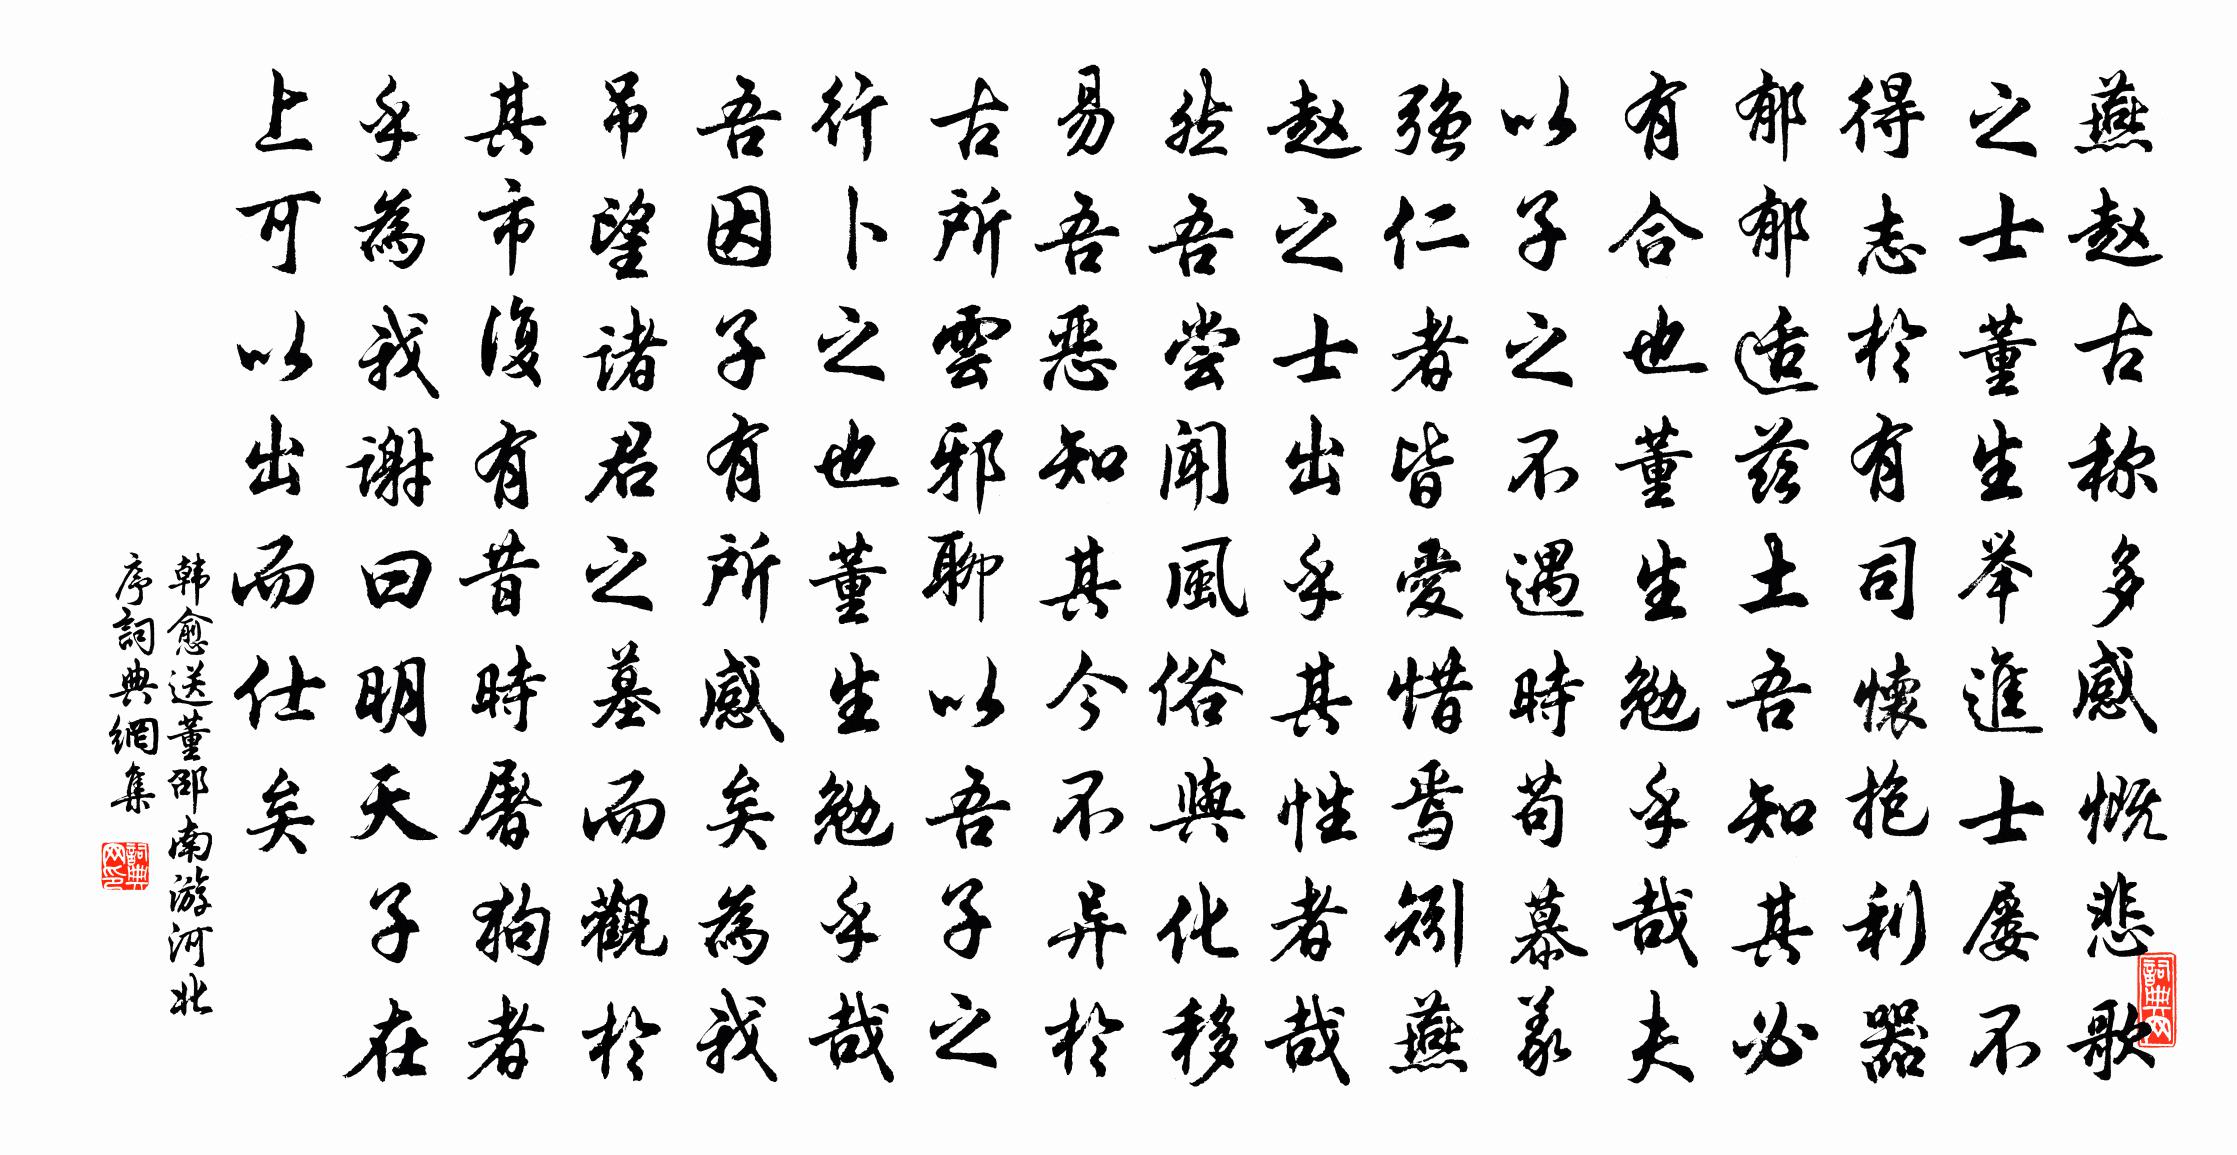 燕赵古称多感慨悲歌
之士董生举進士屡不
得志於有司懷抱利器
郁郁适兹土吾知其必
有合也董生勉乎哉夫
以子之不遇時苟慕義
强仁者皆愛惜焉矧燕
赵之士出乎其性者哉
然吾尝闻風俗與化移
易吾惡知其今不异於
古所雲邪聊以吾子之
行卜之也董生勉乎哉
吾因子有所感矣為我
吊望諸君之墓而觀於
其市復有昔時屠狗者
乎為我谢曰明天子在
上可以出而仕矣
韩愈送董邵南游河北
序詞典網集
詞典网
詞典网印